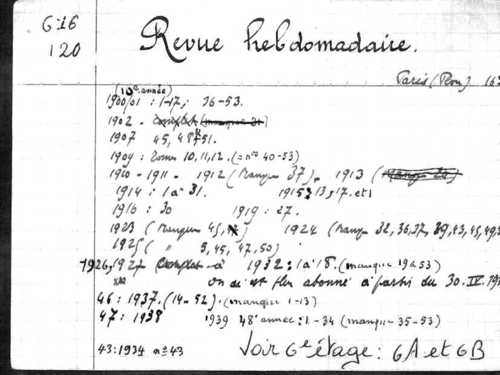 G:16
120
Revue hebdomadaire.
Paris (Plon) 16
(10e année)
1900/01 : 1-17, 36-53.
1902 - complet (manque 21)
1907 45, 48, 51.
1909 : Tomes 10, 11, 12. (= nos 40-53)
1910 - 1911 - 1912 (Manque 37), 1913
1914 : 1 à 31. 1915 : 13, 17. et 1
1916 : 30 1919 : 27.
1923 (Manquent 45, 1924 (Manq. 32, 36, 37, 39, 43, 45, 49
1925 ( " 5, 45, 47, 50)
1926, 1927 complet à 1932 : 1 à 18. (manque 19 à 53)
on ne est plus abonné à partir du 30. IV. 19
46 : 1937. (14-52). (manque 1-13)
47 : 1938 1939 48e année : 1-34 (manque 35-53)
43 : 1934 n° 43 Voir 6e étage : 6A et 6B